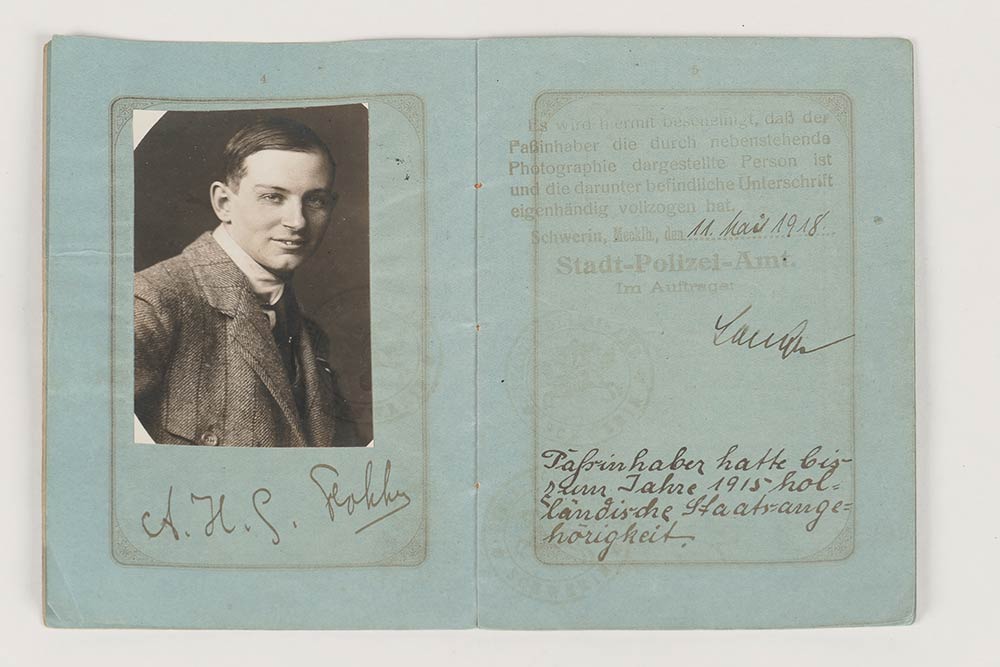 4
A. H. G. Fokker
5
Es wird hiermit bescheinigt, daß der
Paßinhaber die durch nebenstehende
Photographie dargestellte Person ist
und die darunter befindliche Unterschrift
eigenhändig vollzogen hat.
Schwerin, Mecklb., den 11. Mai 1918.
Stadt-Polizei-Amt.
Im Auftrage:
Paßinhaber hatte bis
zum Jahre 1915 hol-
ländische Staatsange-
hörigkeit.